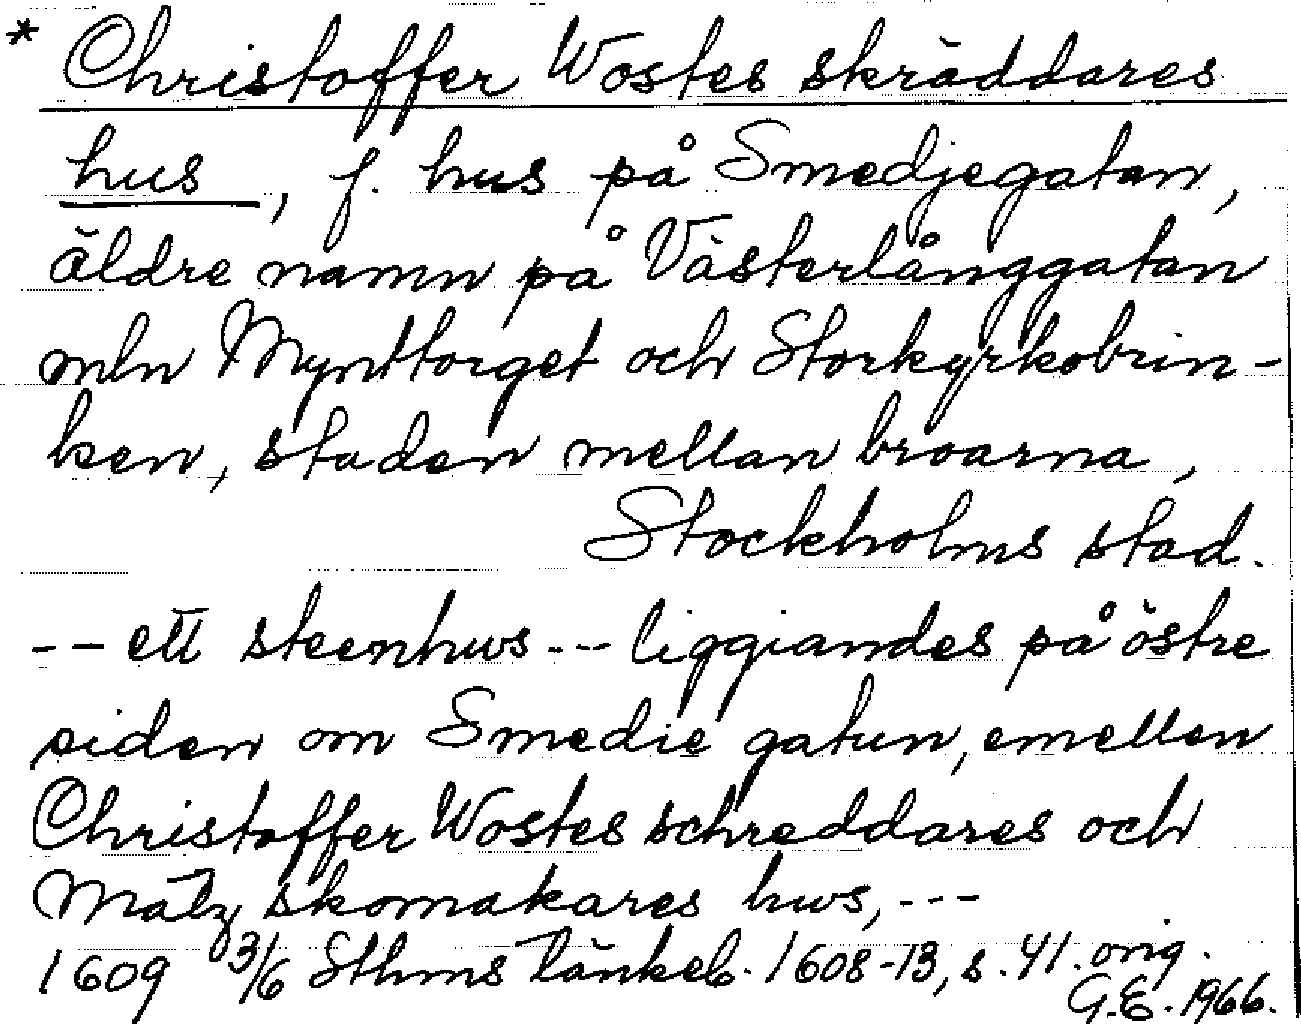 * Christoffer Wostes skräddares
hus, f. hus på Smedjegatan,
äldre namn på Västerlånggatan
mln Mynttorget och Storkyrkobrin-
ken, staden mellan broarna,
Stockholms stad.
-- ett steenhus --- liggiandes på östre
siden om Smedie gatun, emellen
Christoffer Wostes schreddares och
Matz skomakares hws, ---
1609 3/6 Sthms tänkeb. 1608-13, s. 41. orig.
G.E. 1966.